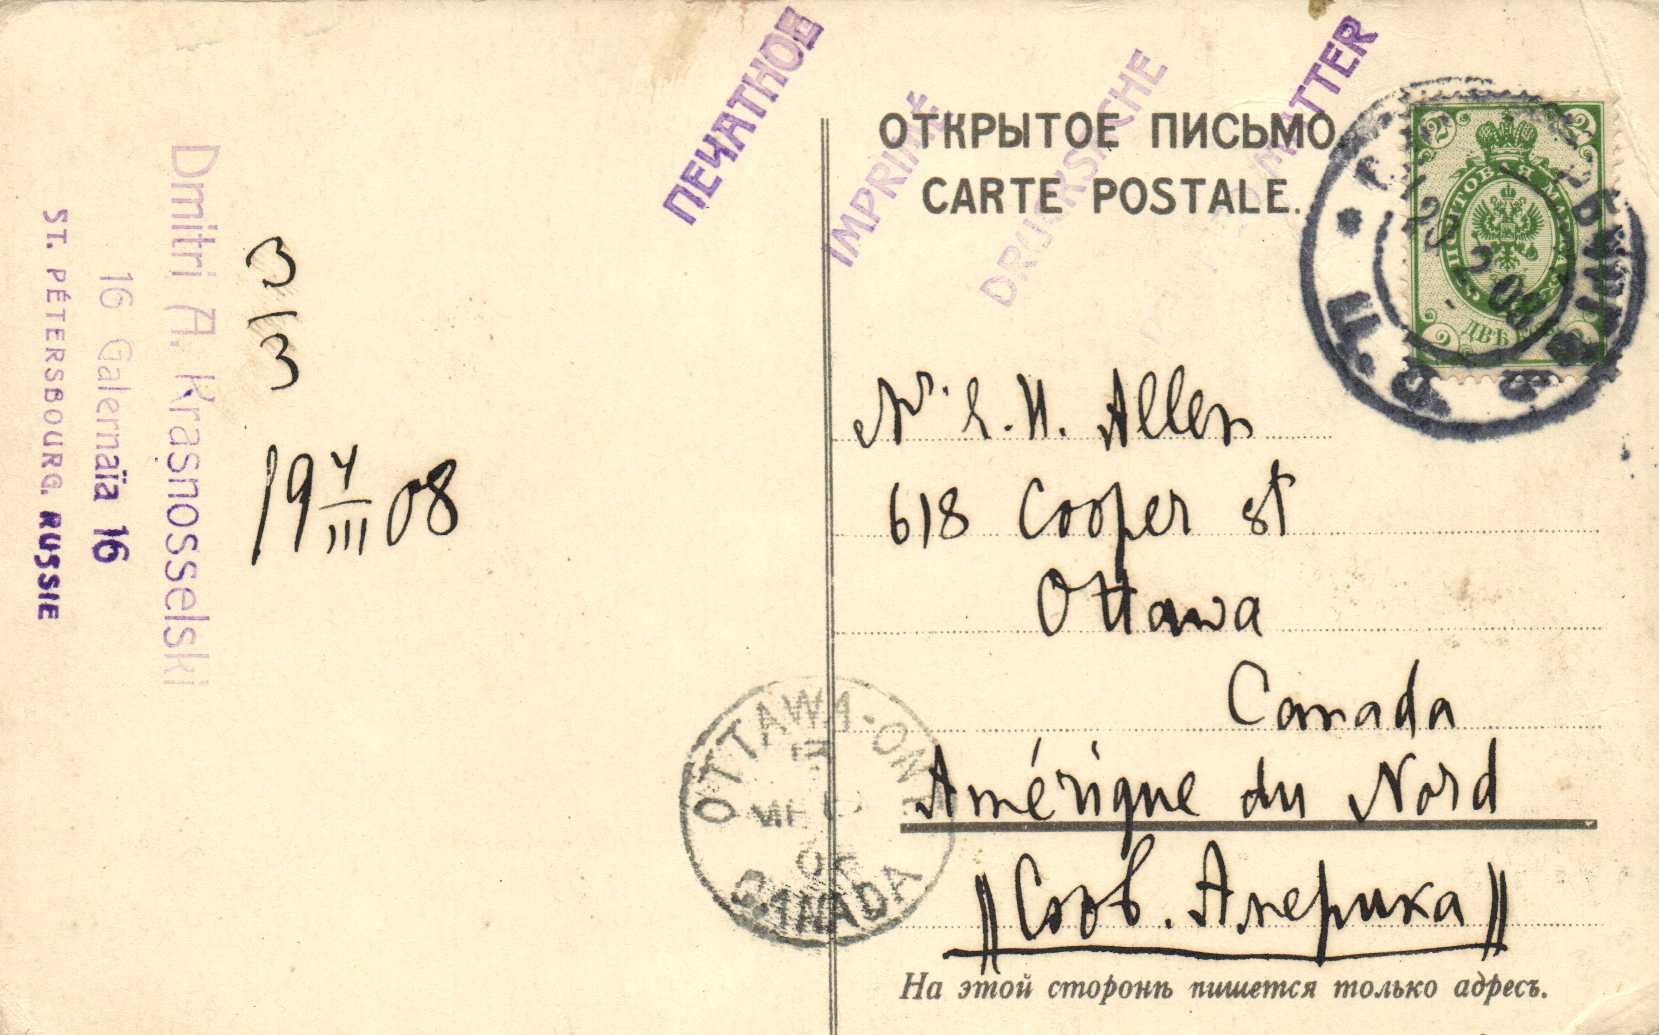 ПЕЧАТНОЕ
IMPRIMÉ
DRUCKSACHE
MATTER
ОТКРЫТОЕ ПИСЬМО.
CARTE POSTALE.
2 2
ПОЧТОВАЯ МАРКА
ДВѢ
2 08
Dmitri A. Krasnosselski
16 Galernaïa 16
ST. PÉTERSBOURG. RUSSIE
3
3
19 V/III 08
Mr. L. H. Allen
618 Cooper st
Ottawa
Canada
Amérique du Nord
Америка
OTTAWA-ONT
CANADA
На этой сторонѣ пишется только адресъ.